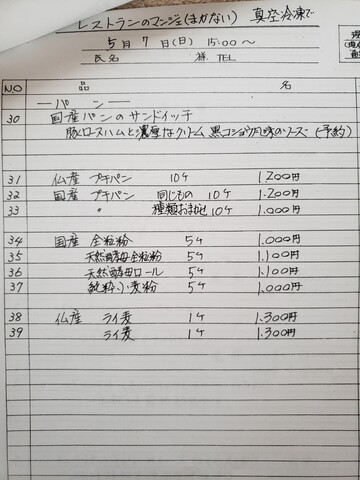 レストランのマンジェ(まかない) 真空冷凍で
5月7日(日) 15:00〜
氏名 様 TEL
NO 品 名
ーパンー
30 国産パンのサンドイッチ
豚ロースハムと濃厚なクリーム、黒コショウ風味のソース"(予約)
31 仏産 プチパン 10ケ 1.200円
32 国産 プチパン 同じもの 10ケ 1.200円
33 〃 種類おまかせ 10ケ 1.000円
34 国産 全粒粉 5ケ 1.000円
35 天然酵母全粒粉 5ケ 1.100円
36 天然酵母ロール 5ケ 1.100円
37 純粋小麦粉 5ケ 1.000円
38 仏産 ライ麦 1ケ 1.300円
39 ライ麦 1ケ 1.300円